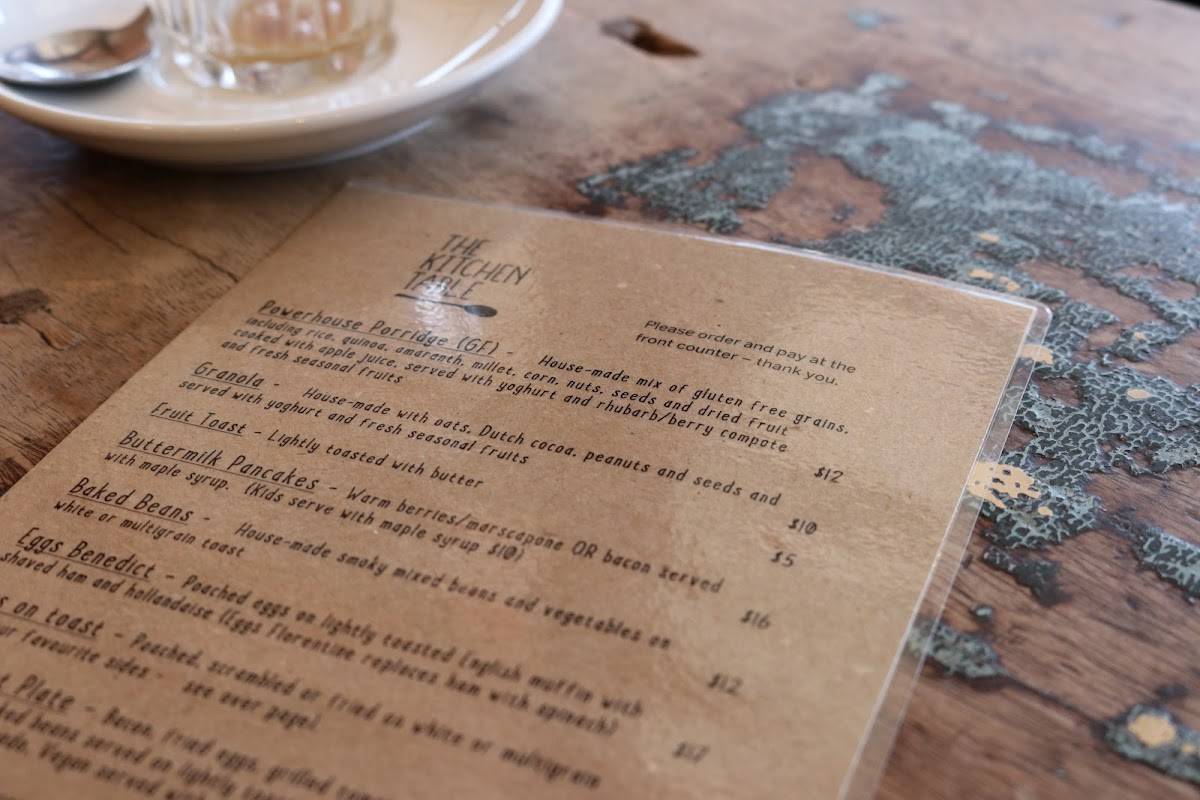 THE
KITCHEN
TABLE
Please order and pay at the
front counter – thank you.
Powerhouse Porridge (GF) - House-made mix of gluten free grains,
including rice, quinoa, amaranth, millet, corn, nuts, seeds and dried fruit
cooked with apple juice, served with yoghurt and rhubarb/berry compote
and fresh seasonal fruits $12
Granola - House-made with oats, Dutch cocoa, peanuts and seeds and
served with yoghurt and fresh seasonal fruits $10
Fruit Toast - Lightly toasted with butter $5
Buttermilk Pancakes - Warm berries/marscapone OR bacon served
with maple syrup. (Kids serve with maple syrup $10) $16
Baked Beans - House-made smoky mixed beans and vegetables on
white or multigrain toast $12
Eggs Benedict - Poached eggs on lightly toasted English muffin with
shaved ham and hollandaise (Eggs Florentine replaces ham with spinach) $17
on toast - Poached, scrambled or fried on white or multigrain
favourite sides - see over page)
Plate - Bacon, fried eggs, grilled
beans served on lightly
Vegan served